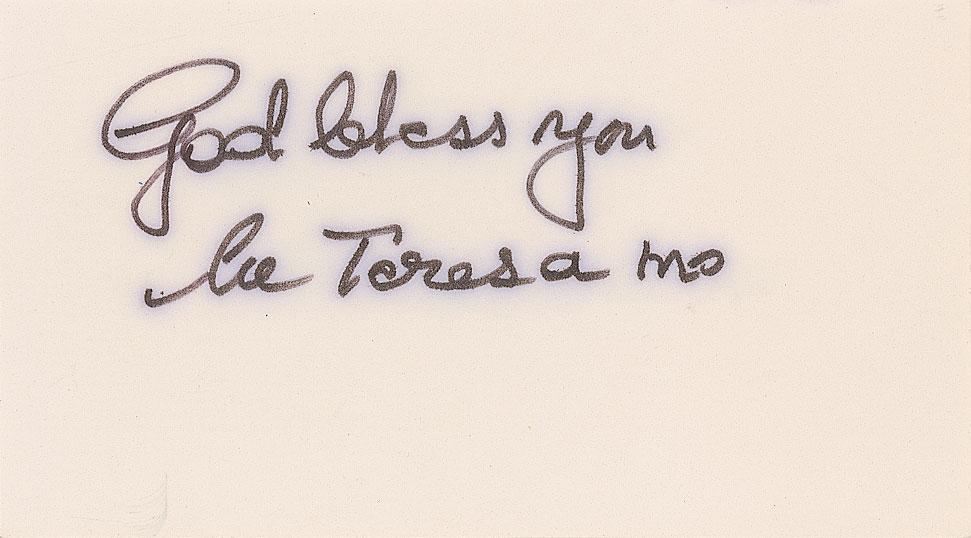 God bless you
lle Teresa mc